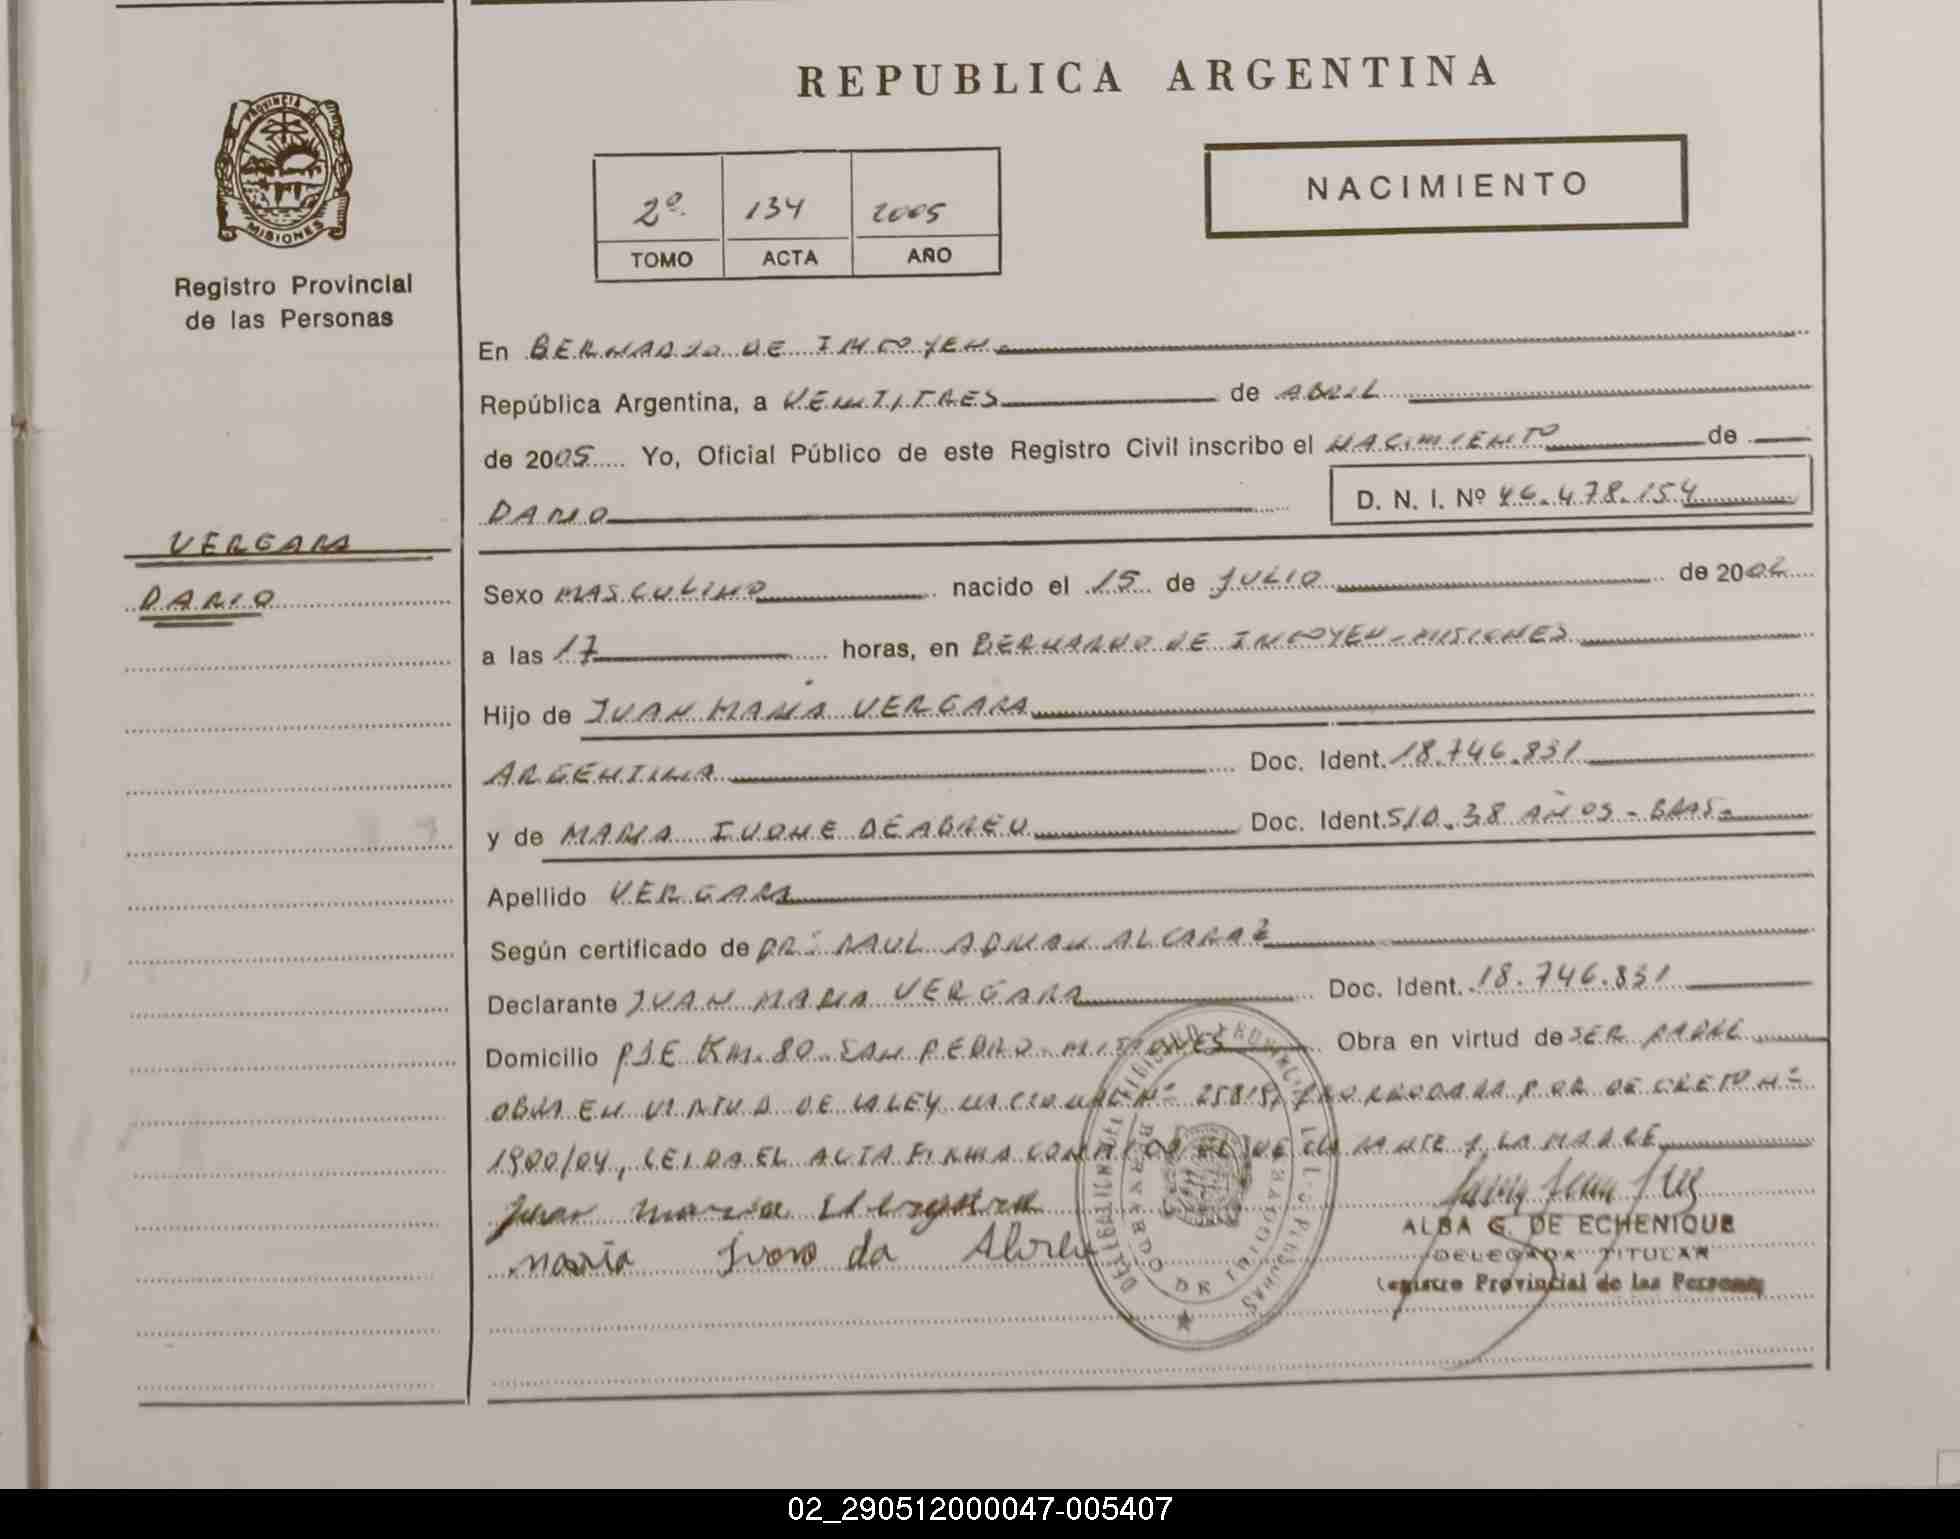 REPUBLICA ARGENTINA
PROVINCIA DE
MISIONES
Registro Provincial
de las Personas
2º 134 2005
TOMO ACTA AÑO
NACIMIENTO
En BERNARDO DE IRIGOYEN
República Argentina, a VEINTITRES de ABRIL
de 2005 Yo, Oficial Público de este Registro Civil inscribo el NACIMIENTO de
DARIO D. N. I. Nº 46.478.154
VERGARA
DARIO
Sexo MASCULINO nacido el 15 de JULIO de 2002
a las 17 horas, en BERNARDO DE IRIGOYEN - MISIONES
Hijo de JUAN MARIA VERGARA
ARGENTINA Doc. Ident. 18.746.831
y de MARIA IVONE DEABREU Doc. Ident. S/D. 38 AÑOS - BRAS-
Apellido VERGARA
Según certificado de DR: RAUL ADRIAN ALCARAZ
Declarante JUAN MARIA VERGARA Doc. Ident. 18.746.831
Domicilio PJE KM. 80 - SAN PEDRO - MISIONES Obra en virtud de SER PADRE
OBRA EN VIRTUD DE LA LEY NACIONAL Nº 25819, PRORROGADA POR DECRETO Nº
1900/04, LEIDA EL ACTA FIRMA CONMIGO EL DECLARANTE Y LA MADRE
Juan Maria
Maria Ivone da Abreu
ALBA G. DE ECHENIQUE
DELEGADA TITULAR
Registro Provincial de las Personas
02_290512000047-005407